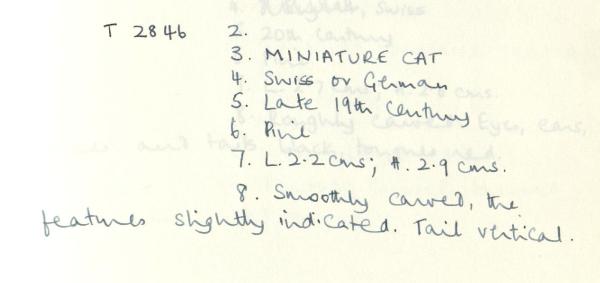 T 2846 2.
3. MINIATURE CAT
4. Swiss or German
5. Late 19th Century
6. Pine
7. L. 2.2 cms; H. 2.9 cms.
8. Smoothly carved, the
features slightly indicated. Tail vertical.